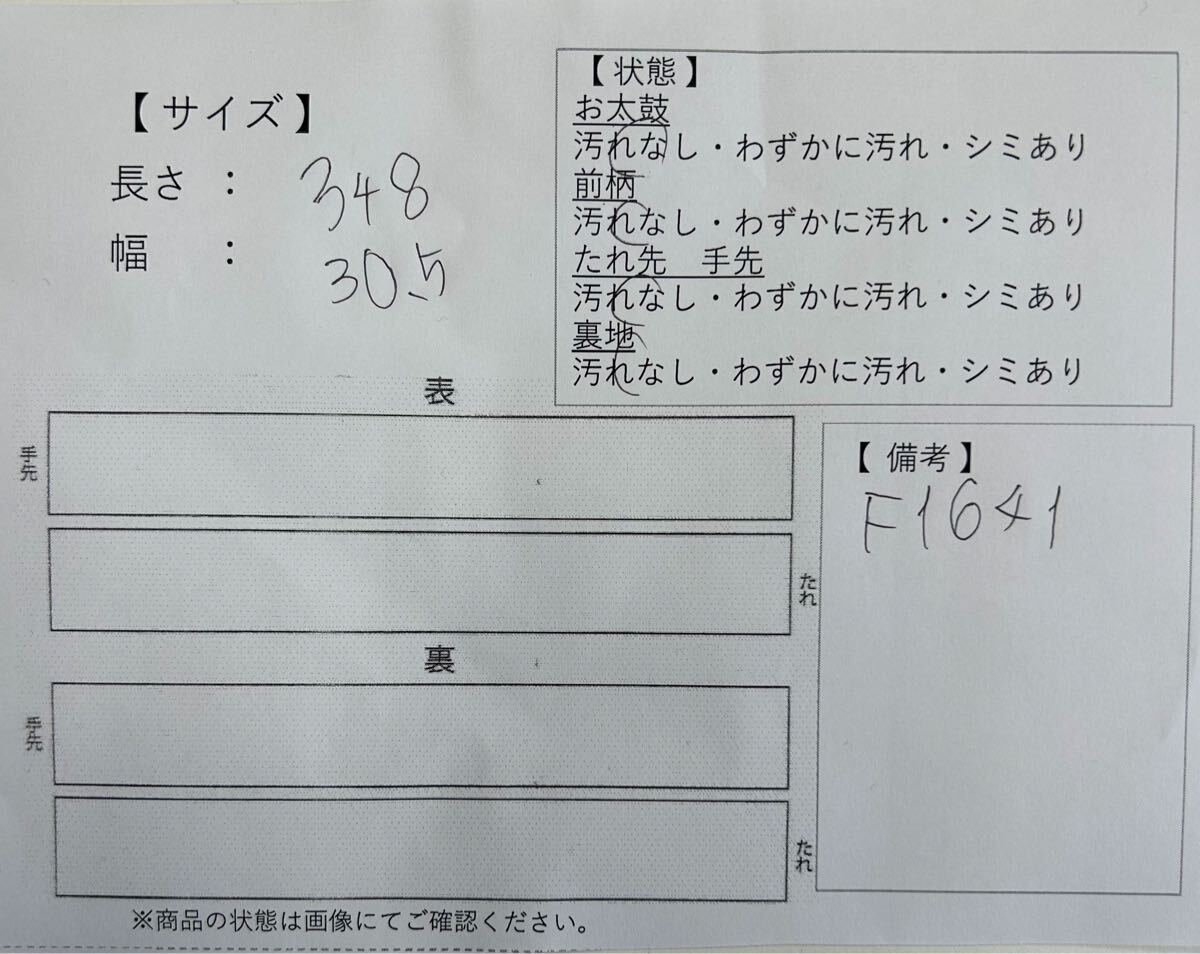 【サイズ】
長さ ： 348
幅 ： 30.5
【状態】
お太鼓
汚れなし・わずかに汚れ・シミあり
前柄
汚れなし・わずかに汚れ・シミあり
たれ先 手先
汚れなし・わずかに汚れ・シミあり
裏地
汚れなし・わずかに汚れ・シミあり
表
手先
たれ
裏
手先
たれ
【備考】
F1641
※商品の状態は画像にてご確認ください。